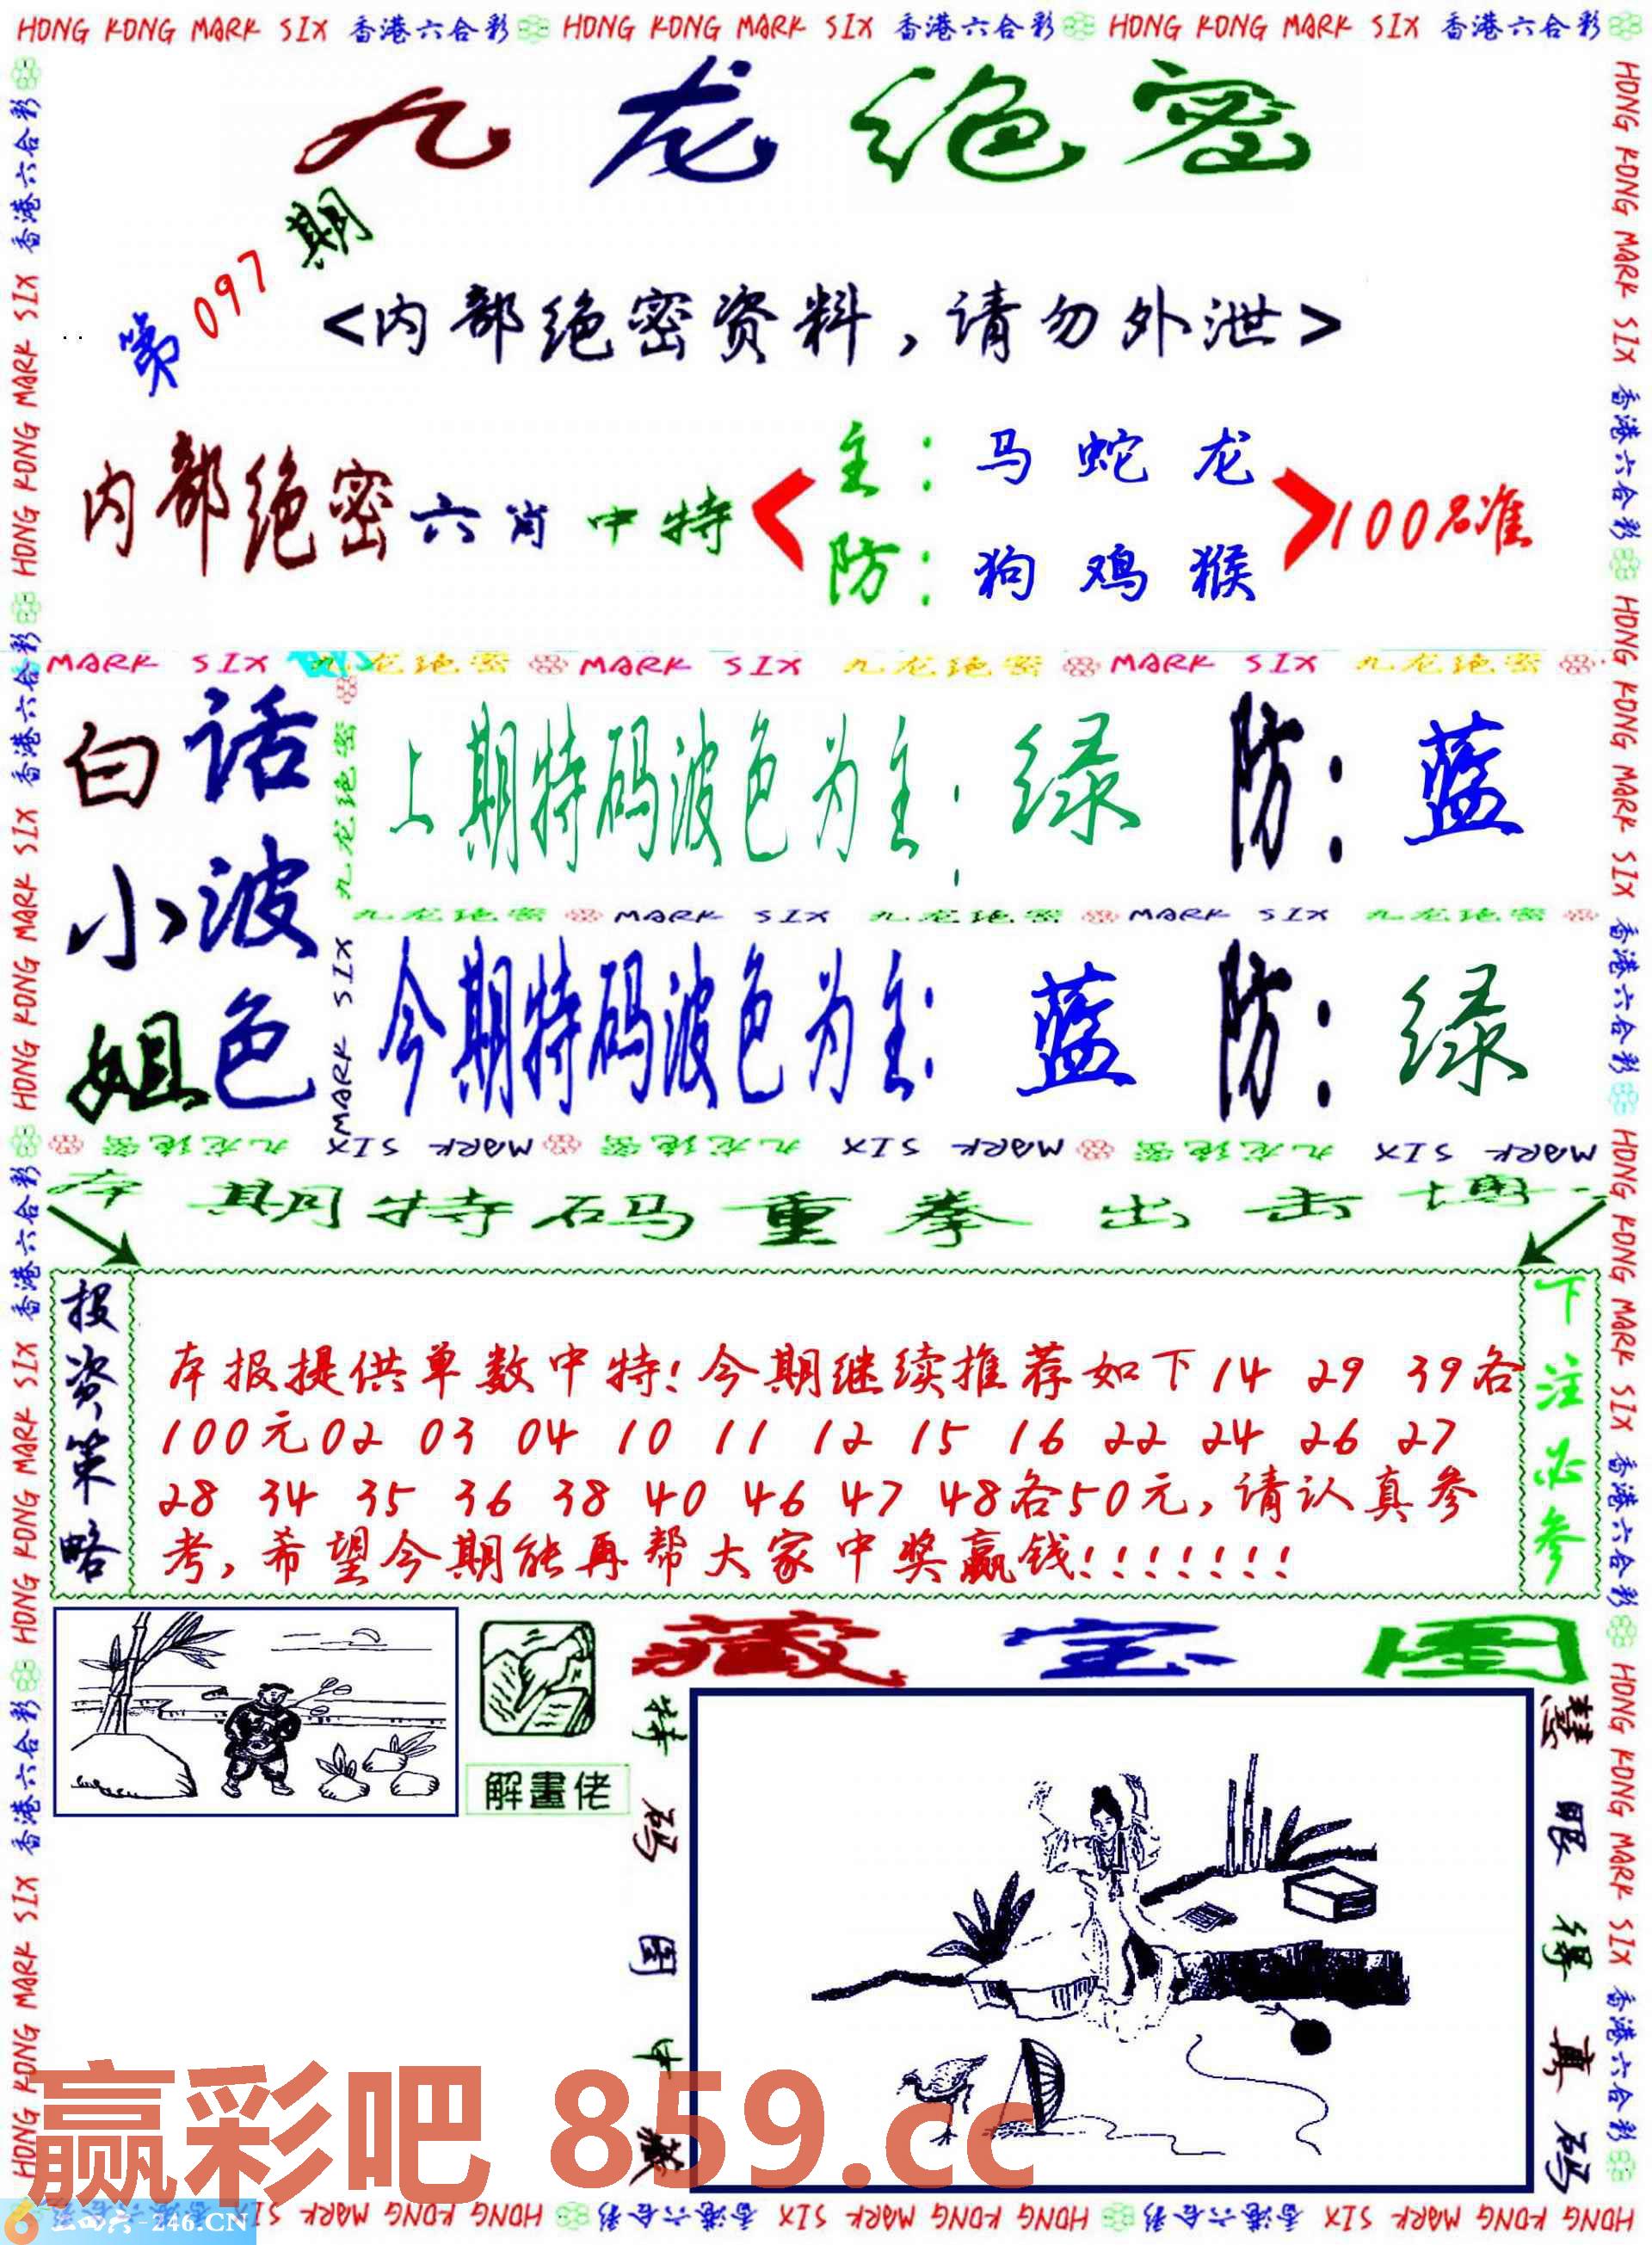 HONG KONG MARK SIX 香港六合彩 HONG KONG MARK SIX 香港六合彩 HONG KONG MARK SIX 香港六合彩
九龙绝密
第097期
<内部绝密资料,请勿外泄>
内部绝密六肖中特
主:马 蛇 龙
防:狗 鸡 猴
100%准
MARK SIX 九龙绝密 MARK SIX 九龙绝密 MARK SIX 九龙绝密
白小姐
话波色
上期特码波色为主: 绿 防: 蓝
九龙绝密 MARK SIX 九龙绝密 MARK SIX 九龙绝密
今期特码波色为主: 蓝 防: 绿
九龙绝密 MARK SIX 九龙绝密 MARK SIX 九龙绝密 MARK SIX
本期特码重拳出击博
投资策略
本报提供单数中特!今期继续推荐如下14 29 39各
100元02 03 04 10 11 12 15 16 22 24 26 27
28 34 35 36 38 40 46 47 48各50元,请认真参
考,希望今期能再帮大家中奖赢钱!!!!!!!
下注必参
解畫佬
藏宝图
特码图中藏
慧眼得真码
赢彩吧 859.cc
246.CN
HONG KONG MARK SIX 香港六合彩 HONG KONG MARK SIX 香港六合彩 HONG KONG MARK SIX